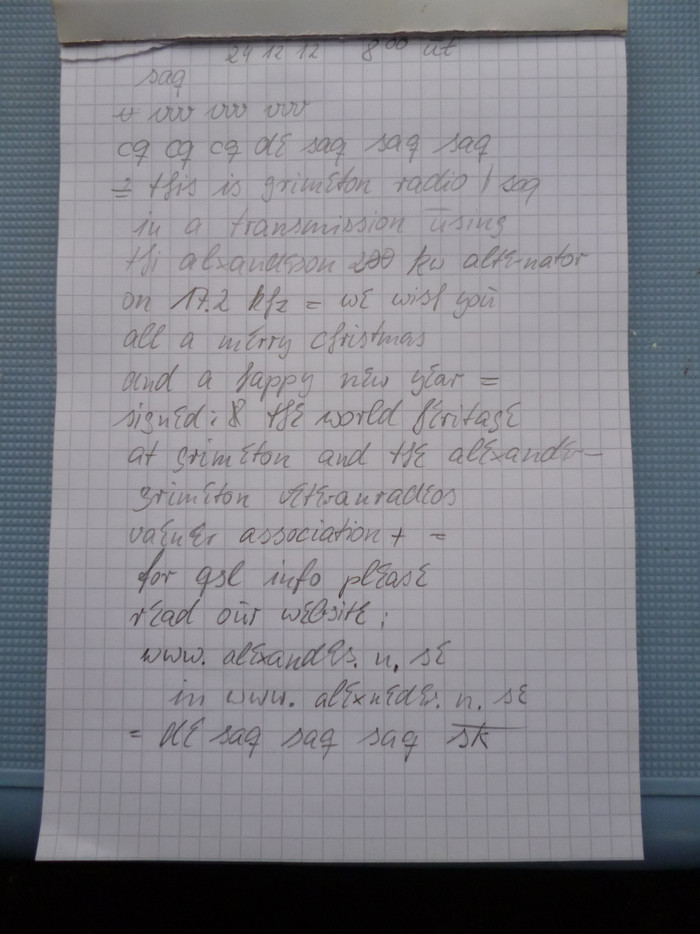 24 12 12 8⁰⁰ ut
saq
vvv vvv vvv
cq cq cq de saq saq saq
= this is grimeton radio / saq
in a transmission using
thi alexanderson 200 kw alte-nator
on 17.2 khz = we wish you
all a merry christmas
and a happy new year =
signed: 8 the world heritage
at grimeton and the alexander-
grimeton veteranradios
vaener association + =
for qsl info please
read our website:
www. alexandes. n. se
in www. alexneder. n. se
= de saq saq saq sk